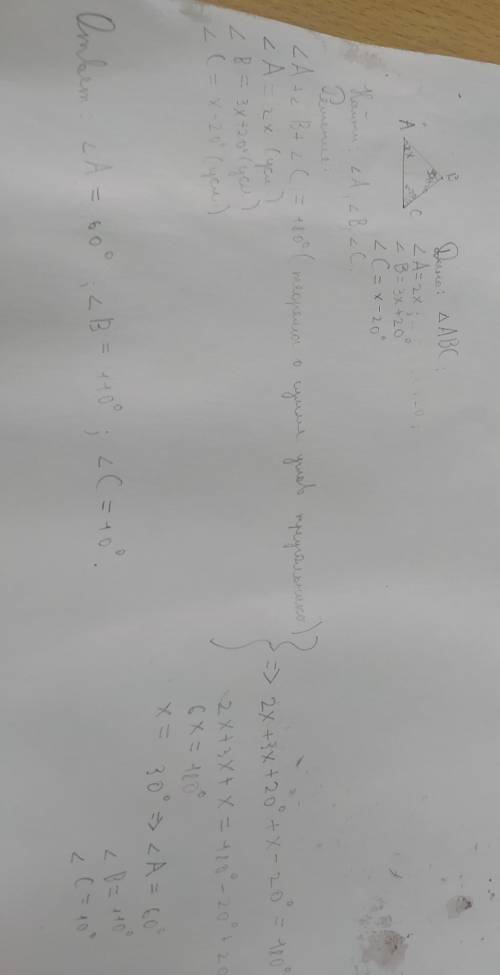 Дано: △ABC;
∠A = 2x;
∠B = 3x+20°
∠C = x-20°
A
2x
B
C
Найти: ∠A, ∠B, ∠C.
Решение:
∠A + ∠B + ∠C = 180° (теорема о сумме углов треугольника)
∠A = 2x (усл)
∠B = 3x+20° (усл)
∠C = x-20° (усл)
} => 2x+3x+20°+x-20° = 180
2x+3x+x = 180°-20°+20
6x = 180°
x = 30° => ∠A = 60°
∠B = 110°
∠C = 10°
Ответ: ∠A = 60°; ∠B = 110°; ∠C = 10°.